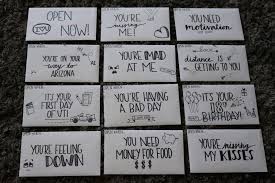 OPEN
NOW!
YOU'RE missing
ME!
YOU NEED
motivation
YOU'RE ON YOUR
way to
ARIZONA
YOU'RE MAD
AT ME
distance is
GETTING TO YOU
IT'S YOUR
FIRST DAY
OF VT!
YOU'RE HAVING
A BAD DAY
IT'S YOUR
BIRTHDAY!
YOU'RE FEELING
DOWN
YOU NEED
MONEY FOR FOOD
$$$
YOU'RE missing
MY KISSES